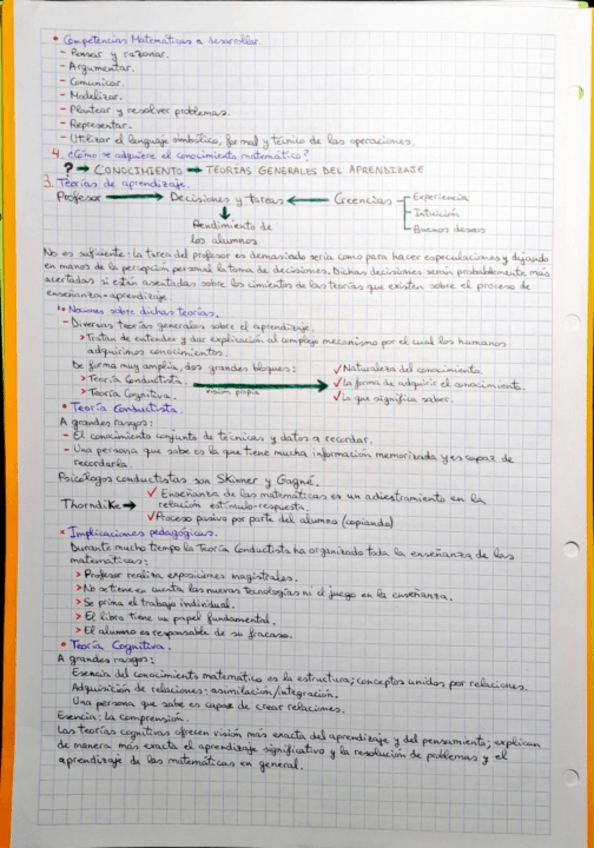 • Competencias Matemáticas a desarrollar.
- Pensar y razonar.
- Argumentar.
- Comunicar.
- Modelizar.
- Plantear y resolver problemas.
- Representar.
- Utilizar el lenguaje simbólico, formal y técnico de las operaciones.
4. ¿Cómo se adquiere el conocimiento matemático?
? → CONOCIMIENTO → TEORÍAS GENERALES DEL APRENDIZAJE
3. Teorías de aprendizaje.
Profesor → Decisiones y tareas ← Creencias - Experiencia
- Intuición
- Buenos deseos
Rendimiento de
los alumnos
No es suficiente: La tarea del profesor es demasiado seria como para hacer especulaciones y dejando
en manos de la percepción personal la toma de decisiones. Dichas decisiones serán probablemente más
acertadas si están asentadas sobre los cimientos de las teorías que existen sobre el proceso de
enseñanza-aprendizaje.
• Nociones sobre dichas teorías.
- Diversas teorías generales sobre el aprendizaje.
> Tratan de entender y dar explicación al complejo mecanismo por el cual los humanos
adquirimos conocimientos.
De forma muy amplia, dos grandes bloques: ✓ Naturaleza del conocimiento.
> Teoría Conductista. → ✓ La forma de adquirir el conocimiento.
> Teoría Cognitiva. visión propia ✓ Lo que significa saber.
• Teoría Conductista.
A grandes rasgos:
- El conocimiento conjunto de técnicas y datos a recordar.
- Una persona que sabe es la que tiene mucha información memorizada y es capaz de
recordarla.
Psicólogos conductistas son Skinner y Gagné.
Thorndike → ✓ Enseñanza de las matemáticas es un adiestramiento en la
relación estímulo-respuesta.
✓ Proceso pasivo por parte del alumno (copiando)
• Implicaciones pedagógicas.
Durante mucho tiempo la Teoría Conductista ha organizado toda la enseñanza de las
matemáticas:
> Profesor realiza exposiciones magistrales.
> No se tiene en cuenta las nuevas tecnologías ni el juego en la enseñanza.
> Se prima el trabajo individual.
> El libro tiene un papel fundamental.
> El alumno es responsable de su fracaso.
• Teoría Cognitiva.
A grandes rasgos:
Esencia del conocimiento matemático es la estructura; conceptos unidos por relaciones.
Adquisición de relaciones: asimilación/integración.
Una persona que sabe es capaz de crear relaciones.
Esencia: la comprensión.
Las teorías cognitivas ofrecen visión más exacta del aprendizaje y del pensamiento; explican
de manera más exacta el aprendizaje significativo y la resolución de problemas y el
aprendizaje de las matemáticas en general.